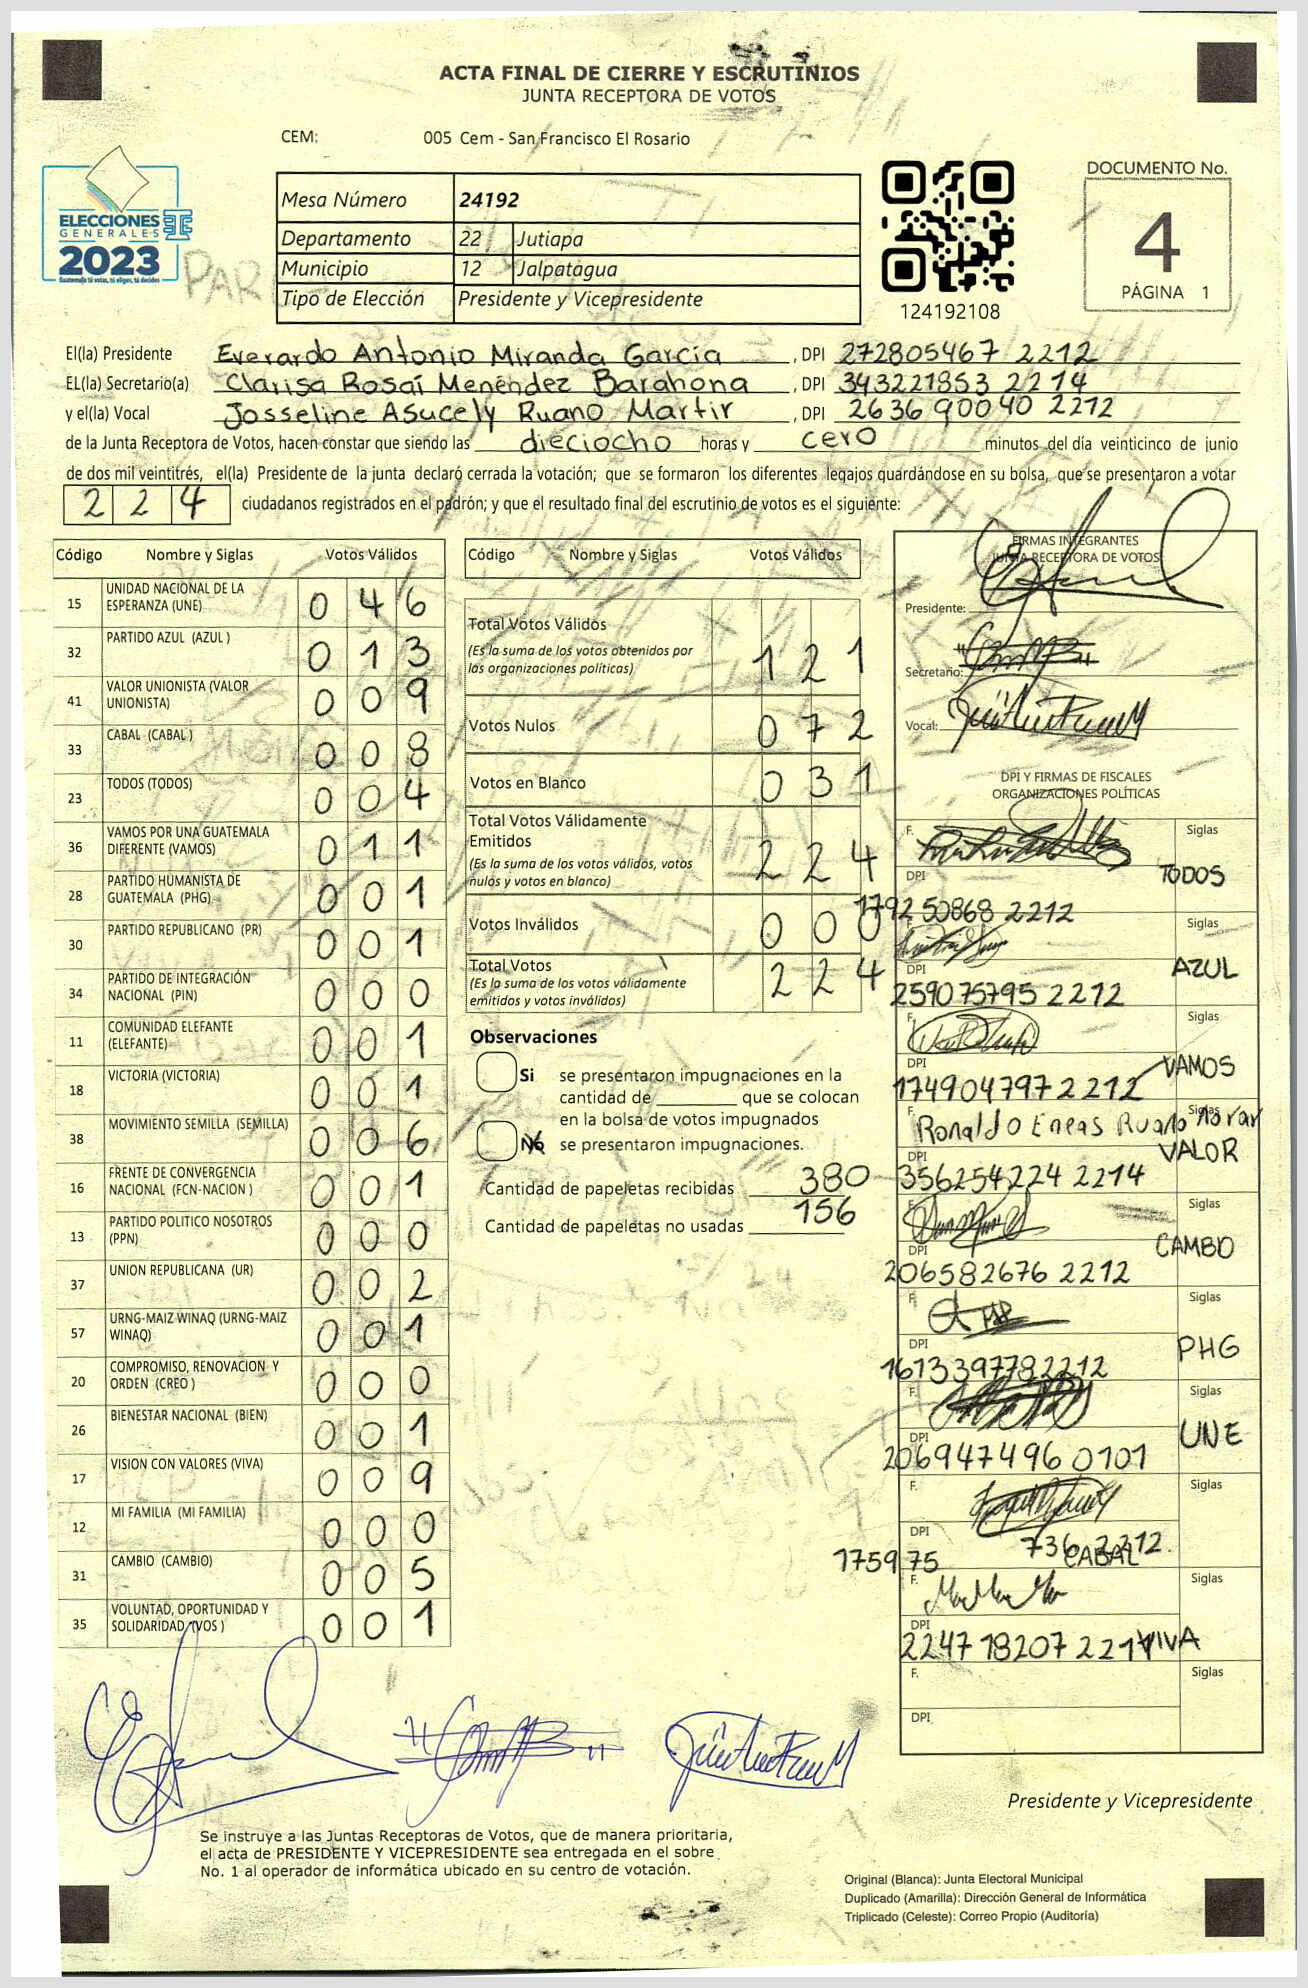 ACTA FINAL DE CIERRE Y ESCRUTINIOS
JUNTA RECEPTORA DE VOTOS
CEM: 005 Cem - San Francisco El Rosario
ELECCIONES
GENERALES
2023
Guatemala tú votas, tú eliges, tú decides
Mesa Número 24192
Departamento 22 Jutiapa
Municipio 12 Jalpatagua
Tipo de Elección Presidente y Vicepresidente
124192108
DOCUMENTO No.
4
PÁGINA 1
El(la) Presidente Everardo Antonio Miranda García , DPI 272805467 2212
EL(la) Secretario(a) Clarisa Rosaí Menéndez Barahona , DPI 343221853 2214
y el(la) Vocal Josseline Asucely Ruano Martir , DPI 2636 90040 2212
de la Junta Receptora de Votos, hacen constar que siendo las dieciocho horas y cero minutos del día veinticinco de junio
de dos mil veintitrés, el(la) Presidente de la junta declaró cerrada la votación; que se formaron los diferentes legajos guardándose en su bolsa, que se presentaron a votar
224 ciudadanos registrados en el padrón; y que el resultado final del escrutinio de votos es el siguiente:
Código Nombre y Siglas Votos Válidos
15 UNIDAD NACIONAL DE LA ESPERANZA (UNE) 0 4 6
32 PARTIDO AZUL (AZUL ) 0 1 3
41 VALOR UNIONISTA (VALOR UNIONISTA) 0 0 9
33 CABAL (CABAL ) 0 0 8
23 TODOS (TODOS) 0 0 4
36 VAMOS POR UNA GUATEMALA DIFERENTE (VAMOS) 0 1 1
28 PARTIDO HUMANISTA DE GUATEMALA (PHG) 0 0 1
30 PARTIDO REPUBLICANO (PR) 0 0 1
34 PARTIDO DE INTEGRACIÓN NACIONAL (PIN) 0 0 0
11 COMUNIDAD ELEFANTE (ELEFANTE) 0 0 1
18 VICTORIA (VICTORIA) 0 0 1
38 MOVIMIENTO SEMILLA (SEMILLA) 0 0 6
16 FRENTE DE CONVERGENCIA NACIONAL (FCN-NACION ) 0 0 1
13 PARTIDO POLITICO NOSOTROS (PPN) 0 0 0
37 UNION REPUBLICANA (UR) 0 0 2
57 URNG-MAIZ WINAQ (URNG-MAIZ WINAQ) 0 0 1
20 COMPROMISO, RENOVACION Y ORDEN (CREO ) 0 0 0
26 BIENESTAR NACIONAL (BIEN) 0 0 1
17 VISION CON VALORES (VIVA) 0 0 9
12 MI FAMILIA (MI FAMILIA) 0 0 0
31 CAMBIO (CAMBIO) 0 0 5
35 VOLUNTAD, OPORTUNIDAD Y SOLIDARIDAD (VOS ) 0 0 1
Código Nombre y Siglas Votos Válidos
Total Votos Válidos
(Es la suma de los votos obtenidos por
las organizaciones políticas) 1 2 1
Votos Nulos 0 7 2
Votos en Blanco 0 3 1
Total Votos Válidamente
Emitidos
(Es la suma de los votos válidos, votos
nulos y votos en blanco) 2 2 4
Votos Inválidos 0 0 0
Total Votos
(Es la suma de los votos válidamente
emitidos y votos inválidos) 2 2 4
Observaciones
Si se presentaron impugnaciones en la
cantidad de ________ que se colocan
en la bolsa de votos impugnados
No se presentaron impugnaciones.
Cantidad de papeletas recibidas 380
Cantidad de papeletas no usadas 156
FIRMAS INTEGRANTES
JUNTA RECEPTORA DE VOTOS
Presidente:
Secretario:
Vocal:
DPI Y FIRMAS DE FISCALES
ORGANIZACIONES POLÍTICAS
F. Siglas
DPI TODOS
1792 50868 2212
Siglas
DPI AZUL
259075795 2212
F. Siglas
DPI VAMOS
174904797 2212
F. Siglas
Ronaldo Eneas Ruano
DPI VALOR
356254224 2214
F. Siglas
DPI CAMBIO
206582676 2212
F. Siglas
DPI PHG
161339778 2212
F. Siglas
DPI UNE
206947496 0101
F. Siglas
DPI 736 2212
175975 CABAL
F. Siglas
DPI VIVA
2247 18207 2214
F. Siglas
DPI
Presidente y Vicepresidente
Se instruye a las Juntas Receptoras de Votos, que de manera prioritaria,
el acta de PRESIDENTE Y VICEPRESIDENTE sea entregada en el sobre
No. 1 al operador de informática ubicado en su centro de votación.
Original (Blanca): Junta Electoral Municipal
Duplicado (Amarilla): Dirección General de Informática
Triplicado (Celeste): Correo Propio (Auditoría)